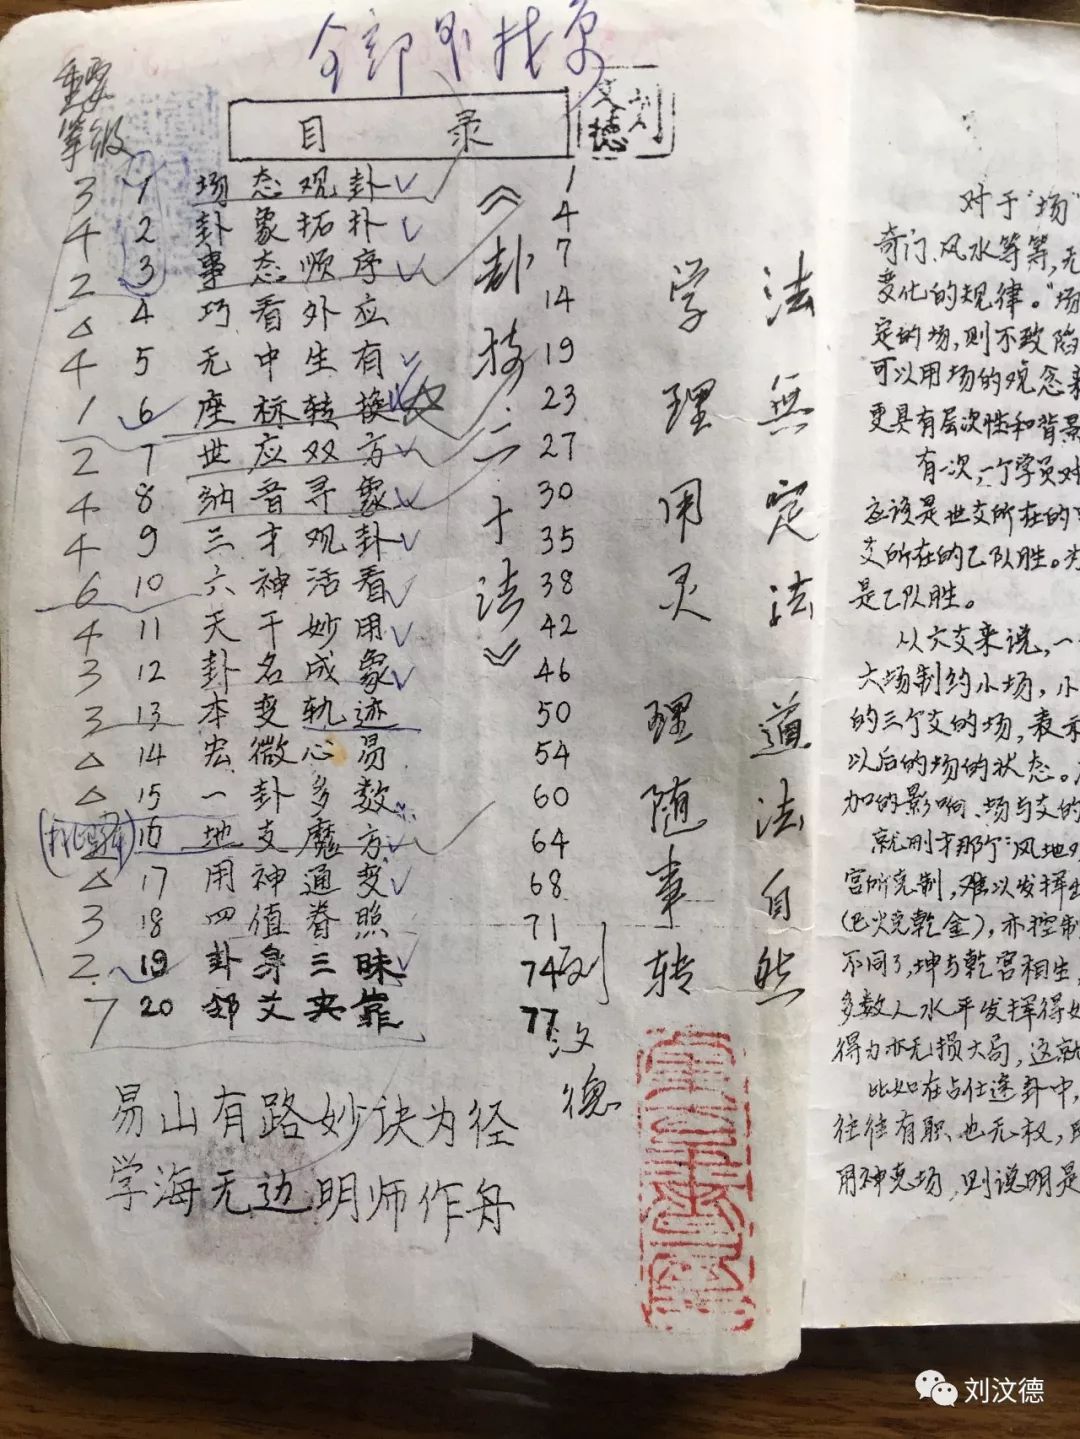 全部是技术
重要
等级
目 录
刘
文
德
3 1 场态观卦 1
4 2 卦象拓扑 4
2 3 事态顺序 7
△ 4 巧看外应 14
4 5 无中生有 19
1 6 座标转换 23
2 7 世应双方 27
4 8 纳音寻象 30
4 9 三才观卦 35
6 10 六神活看 38
4 11 天干妙用 42
3 12 卦名成象 46
3 13 本变轨迹 50
△ 14 宏微心易 54
△ 15 一卦多数 60
16 地支魔方 64
△ 17 用神通变 68
3 18 四值眷照 71
2 19 卦身三昧 74
7 20 邻爻夹靠 77
《卦技二十法》
刘汶德
学理用灵 理随事转
法無定法 道法自然
易山有路妙诀为径
学海无边明师作舟
对于"场"
奇门、风水等等,无
变化的规律。"场
定的场,则不致陷
可以用场的观念来
更具有层次性和背景
有一次,一个学员对
应该是世支所在的
支所在的乙队胜。
是乙队胜。
从六支来说,一
大场制约小场,小
的三个支的场,表示
以后的场的状态。
加的影响、场与支的
就刚才那个"风地观
宫所克制,难以发挥出
(巳火克乾金),亦控制
不同了,坤与乾宫相生,
多数人水平发挥得好
得力亦无损大局,这就
比如在占仕途卦中,
往往有职、也无权,
用神克场,则说明是
刘汶德